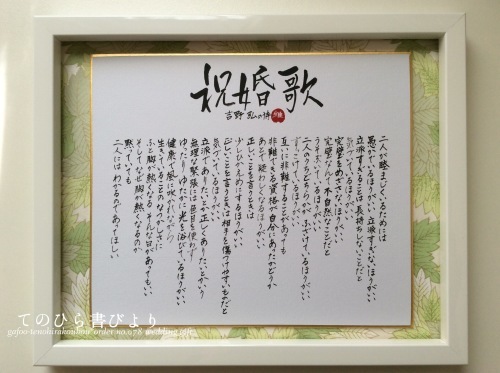 祝婚歌
吉野 弘の詩
二人が睦まじくいるためには
愚かでいるほうがいい 立派すぎないほうがいい
立派すぎることは長持ちしないことだと
気づいているほうがいい
完璧をめざさないほうがいい
完璧なんて不自然なことだと
うそぶいているほうがいい
二人のうちどちらかが ふざけているほうがいい
ずっこけているほうがいい
互いに非難することがあっても
非難できる資格が自分にあったかどうか
あとで疑わしくなるほうがいい
正しいことを言うときは
少しひかえめにするほうがいい
正しいことを言うときは 相手を傷つけやすいものだと
気づいているほうがいい
立派でありたいとか正しくありたいとかいう
無理な緊張には色目を使わず
ゆったりゆたかに 光を浴びているほうがいい
健康で風に吹かれながら
生きていることのなつかしさに
ふと胸が熱くなる そんな日があってもいい
そしてなぜ胸が熱くなるのか
黙っていても
二人にはわかるのであってほしい
てのひら書びより